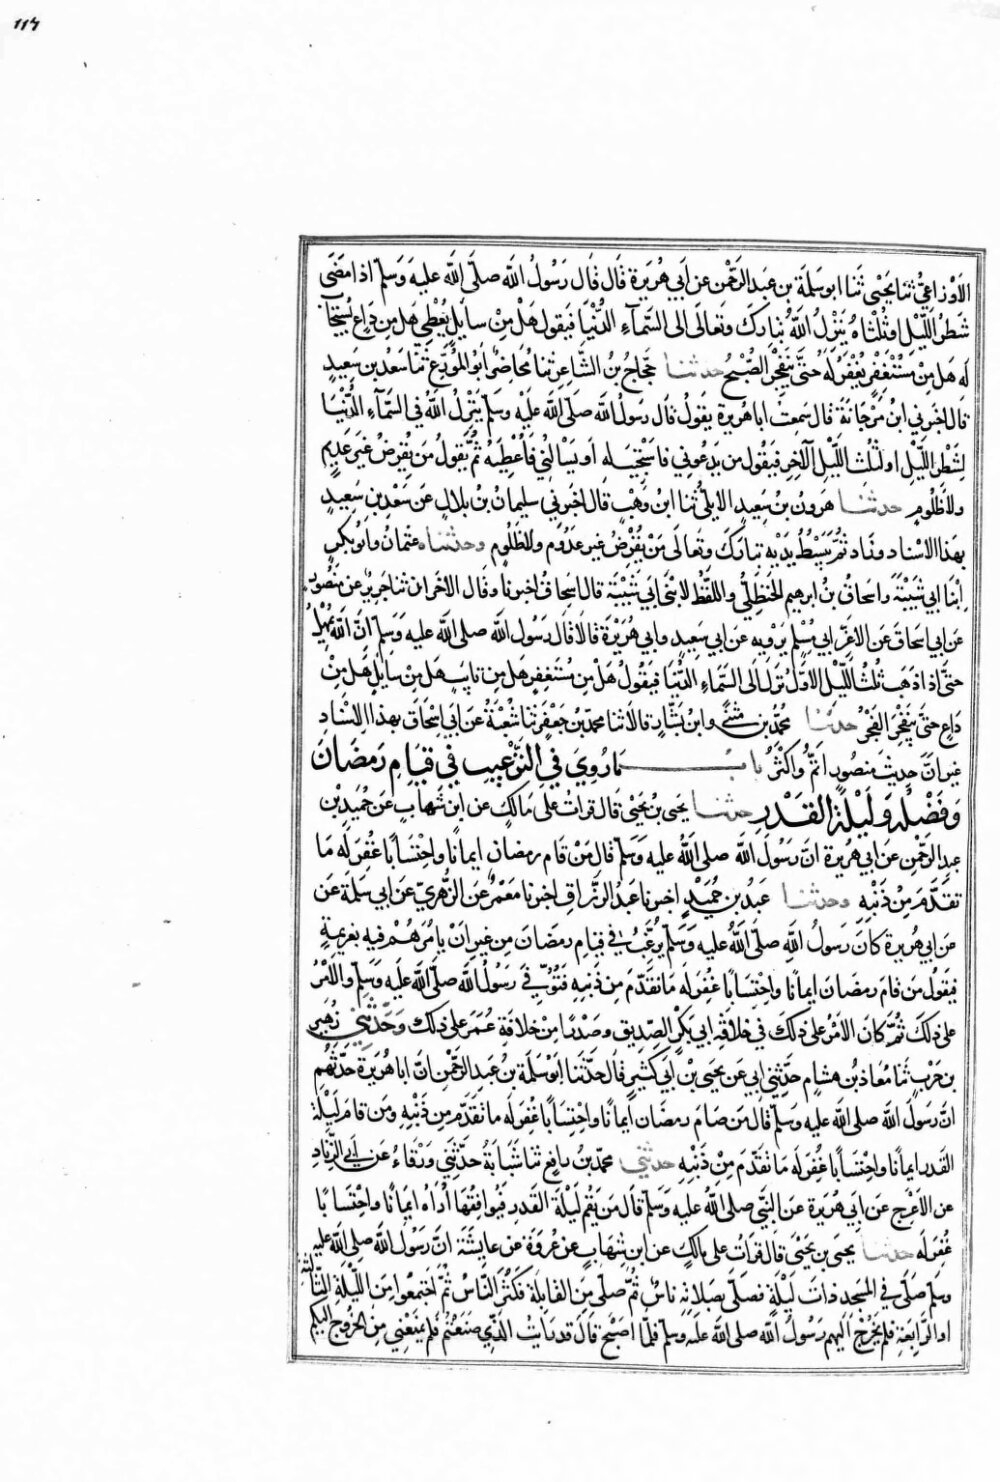 ١١٤
الاوزاعي ثنا يحيى ثنا ابو سلمة بن عبد الرحمن عن ابي هريرة قال قال رسول الله صلى الله عليه وسلم اذا مضى
شطر الليل او ثلثاه ينزل الله تبارك وتعالى الى السماء الدنيا فيقول هل من سايل يعطى هل من داع يستجاب
له هل من مستغفر يغفر له حتى ينفجر الصبح حدثنا حجاج بن الشاعر ثنا محاضر ابو المورع ثنا سعد بن سعيد
قال اخبرني ابن مرجانة قال سمعت ابا هريرة يقول قال رسول الله صلى الله عليه وسلم ينزل الله في السماء الدنيا
لشطر الليل او لثلث الليل الآخر فيقول من يدعوني فاستجيب له او يسالني فاعطيه ثم يقول من يقرض غير عديم
ولا ظلوم حدثنا هرون بن سعيد الايلي ثنا ابن وهب قال اخبرني سليمان بن بلال عن سعد بن سعيد
بهذا الاسناد وزاد ثم يبسط يديه تبارك وتعالى من يقرض غير عدوم ولا ظلوم وحدثنا عثمان وابو بكر
ابنا ابي شيبة واسحاق بن ابرهيم الحنظلي واللفظ لابني ابي شيبة قال اسحاق اخبرنا وقال الاخران ثنا جرير عن منصور
عن ابي اسحاق عن الاغر ابي مسلم يرويه عن ابي سعيد وابي هريرة قالا قال رسول الله صلى الله عليه وسلم ان الله يمهل
حتى اذا ذهب ثلث الليل الاول نزل الى السماء الدنيا فيقول هل من مستغفر هل من تايب هل من سايل هل من
داع حتى ينفجر الفجر حدثنا محمد بن مثنى وابن بشار قالا ثنا محمد بن جعفر ثنا شعبة عن ابي اسحاق بهذا الاسناد
غير ان حديث منصور اتم واكثر باب ما روي في الترغيب في قيام رمضان
وفضله وليلة القدر حدثنا يحيى بن يحيى قال قرات على مالك عن ابن شهاب عن حميد بن
عبد الرحمن عن ابي هريرة ان رسول الله صلى الله عليه وسلم قال من قام رمضان ايمانا واحتسابا غفر له ما
تقدم من ذنبه وحدثنا عبد بن حميد اخبرنا عبد الرزاق اخبرنا معمر عن الزهري عن ابي سلمة عن
عن ابي هريرة كان رسول الله صلى الله عليه وسلم يرغب في قيام رمضان من غير ان يامرهم فيه بعزيمة
فيقول من قام رمضان ايمانا واحتسابا غفر له ما تقدم من ذنبه فتوفي رسول الله صلى الله عليه وسلم والامر
على ذلك ثم كان الامر على ذلك في خلافة ابي بكر الصديق وصدرا من خلافة عمر على ذلك وحدثني زهير
بن حرب ثنا معاذ بن هشام حدثني ابي عن يحيى بن ابي كثير قال حدثنا ابو سلمة بن عبد الرحمن ان ابا هريرة حدثهم
ان رسول الله صلى الله عليه وسلم قال من صام رمضان ايمانا واحتسابا غفر له ما تقدم من ذنبه ومن قام ليلة
القدر ايمانا واحتسابا غفر له ما تقدم من ذنبه حدثني محمد بن رافع ثنا شبابة حدثني ورقاء عن ابي الزناد
عن الاعرج عن ابي هريرة عن النبي صلى الله عليه وسلم قال من يقم ليلة القدر فيوافقها أراه ايمانا واحتسابا
غفر له حدثنا يحيى بن يحيى قال قرات على مالك عن ابن شهاب عن عروة عن عايشة ان رسول الله صلى الله عليه
وسلم صلى في المسجد ذات ليلة فصلى بصلاته ناس ثم صلى من القابلة فكثر الناس ثم اجتمعوا من الليلة الثالثة
او الرابعة فلم يخرج اليهم رسول الله صلى الله عليه وسلم فلما اصبح قال قد رايت الذي صنعتم فلم يمنعني من الخروج اليكم